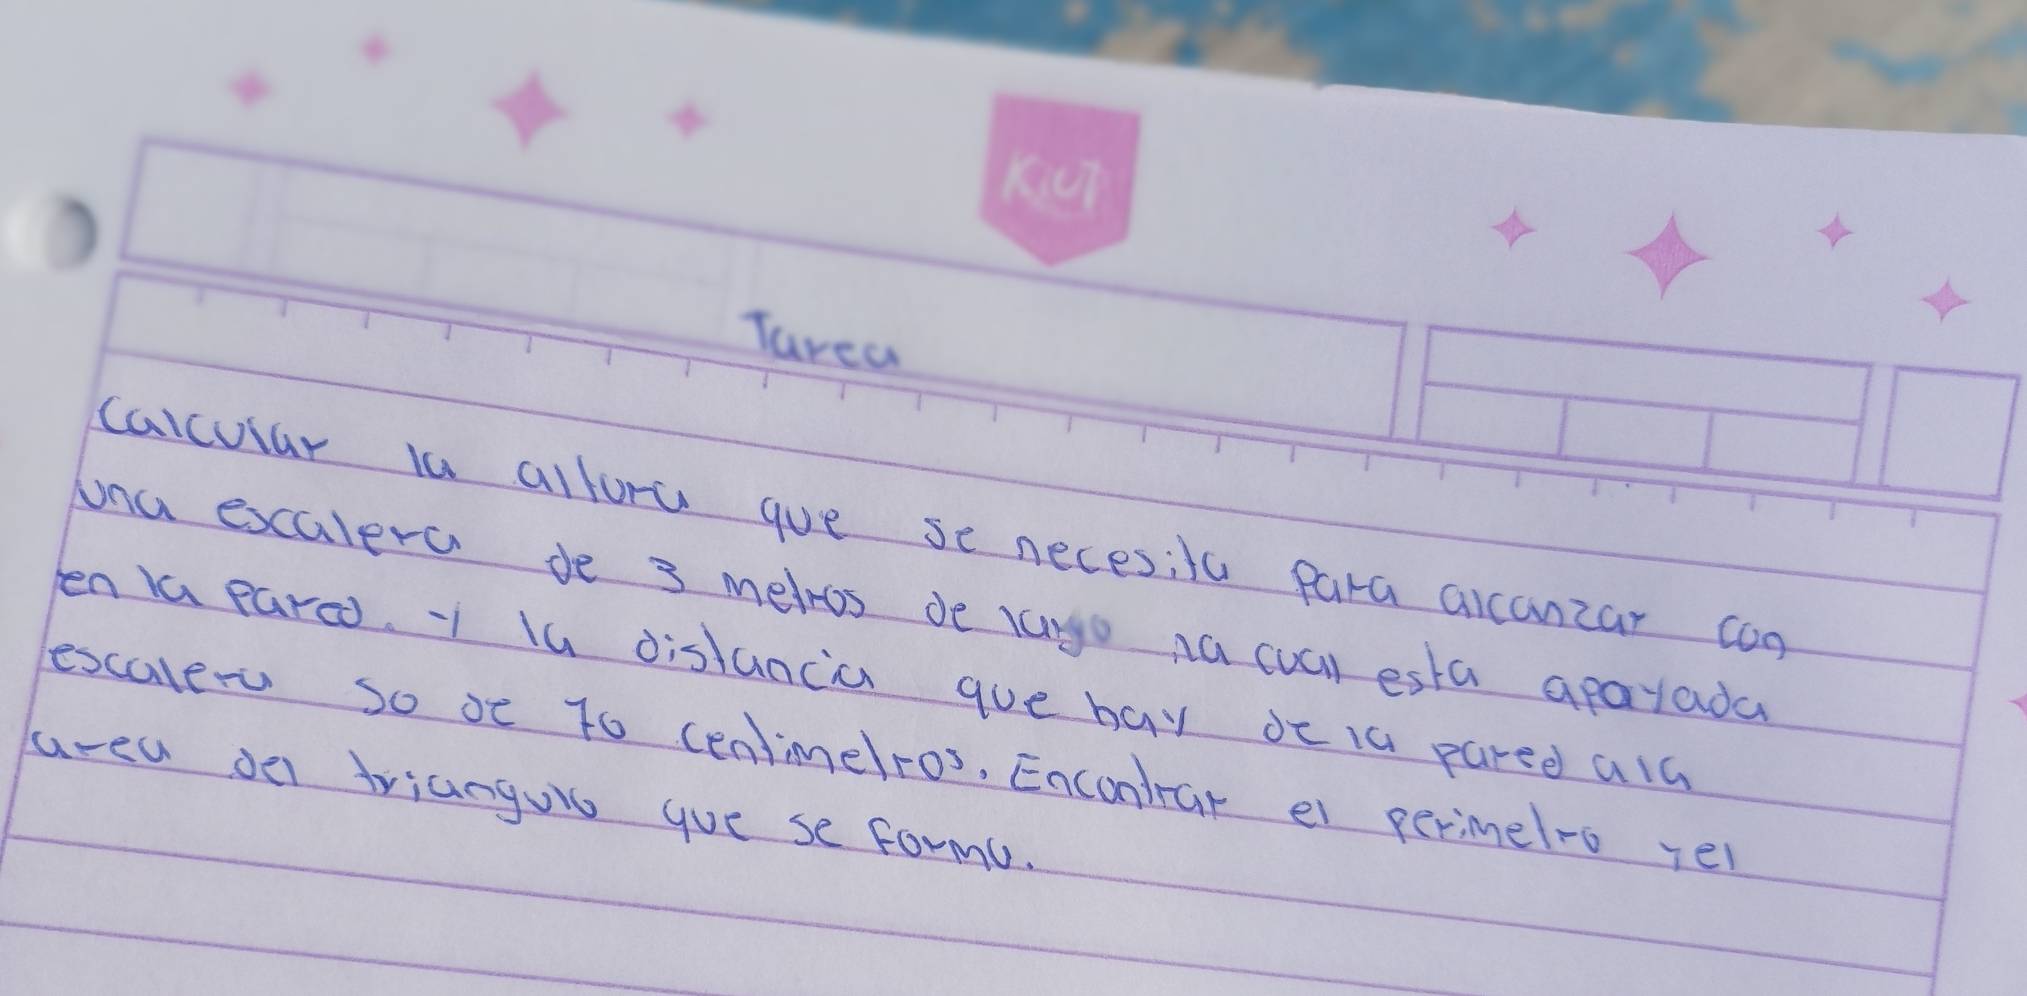 Kiut
Tarea
Calcular la altura que se necesita para alcanzar con
una escalera de 3 metros de largo la cual esta apoyada
en la pared. y la distancia que hay de la pared a la
escalera so de 70 centimetros. Encontrar el perimetro y el
area del triangulo que se forma.